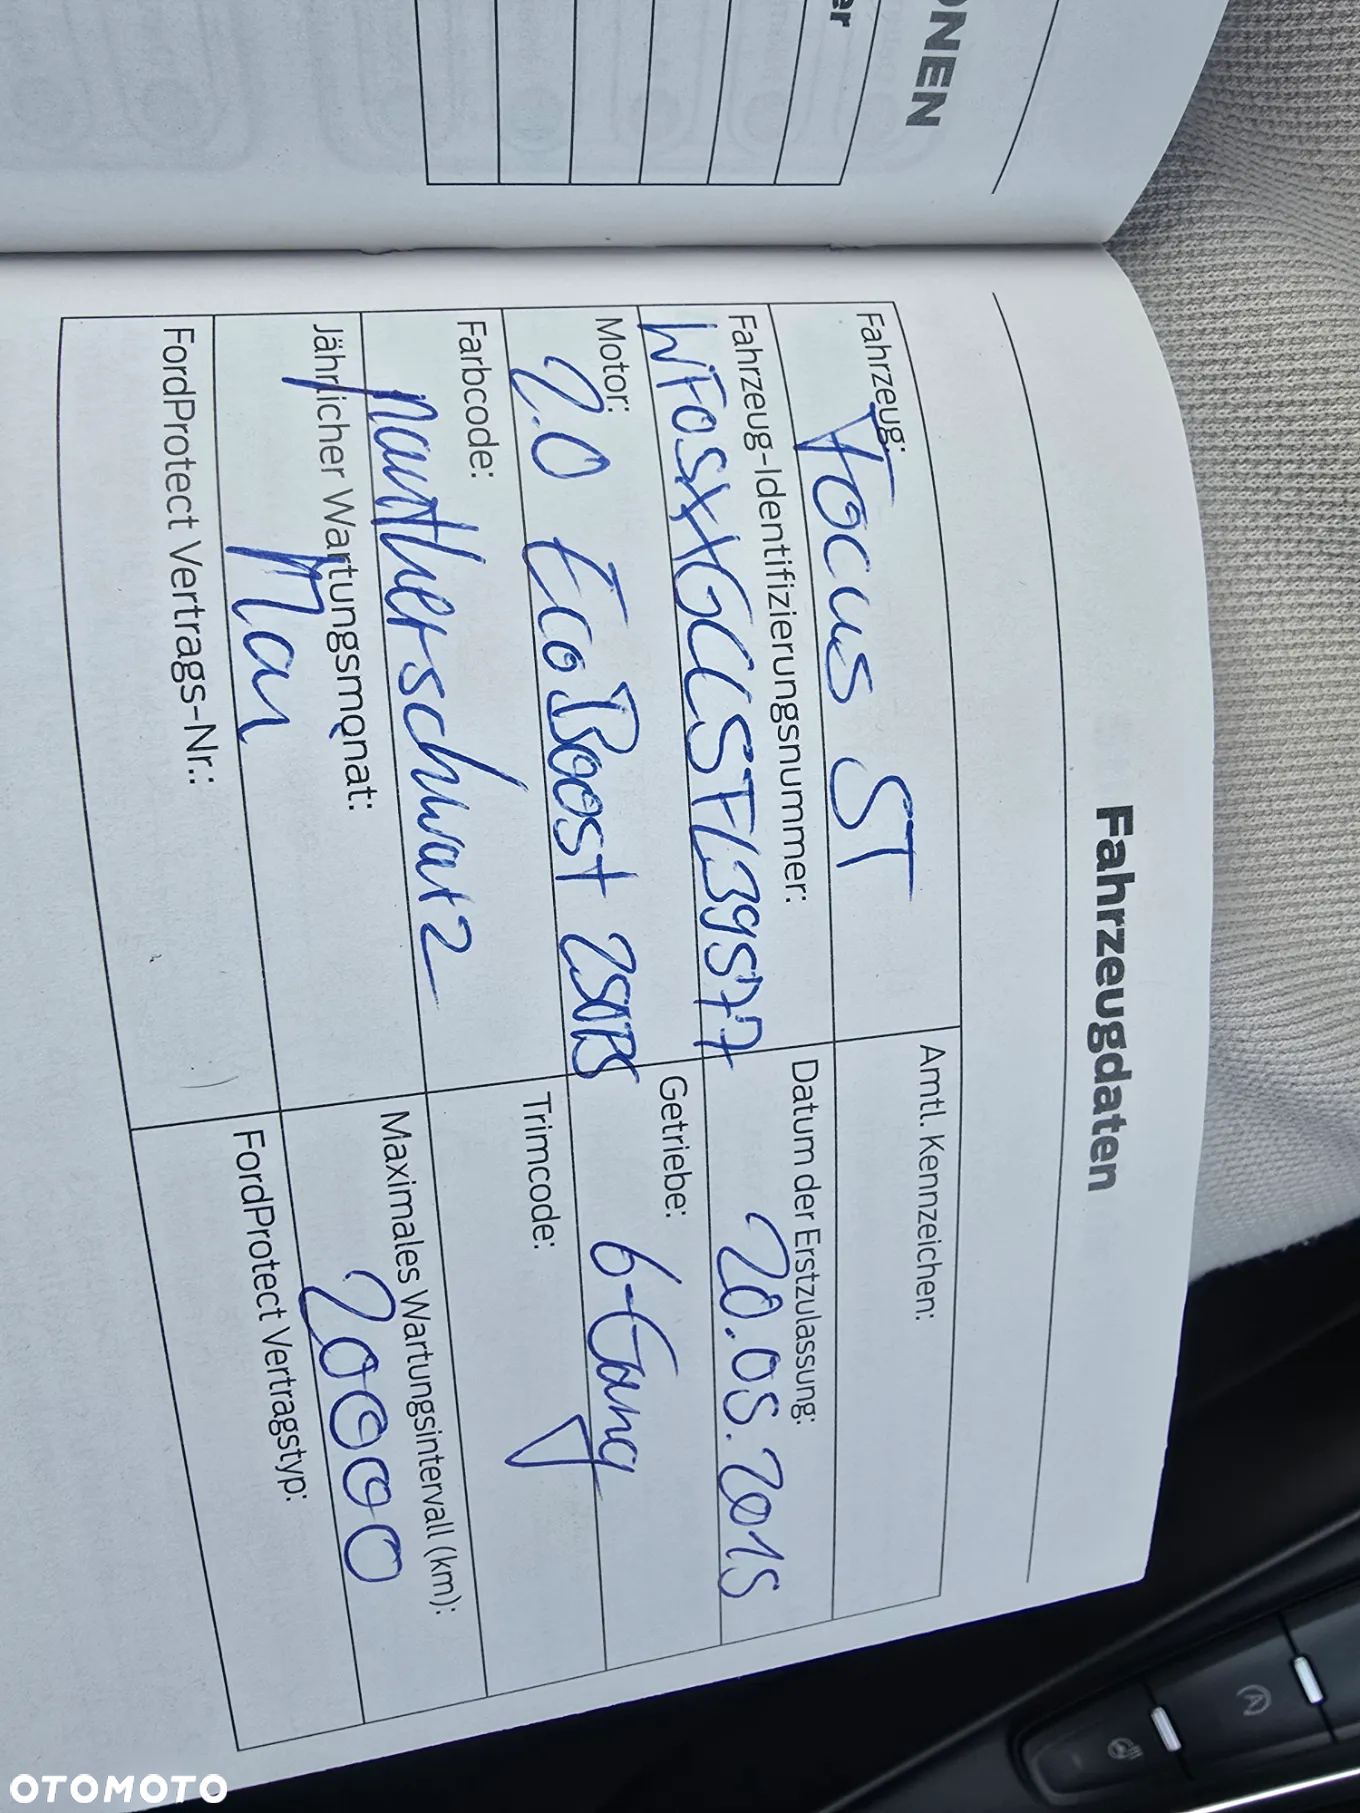 ONEN
er
Fahrzeugdaten
Fahrzeug:
Focus ST
Amtl. Kennzeichen:
Fahrzeug-Identifizierungsnummer:
WF0SXXGCCSFL39577
Datum der Erstzulassung:
20.05.2015
Motor:
2.0 EcoBoost 250PS
Getriebe:
6-Gang
Farbcode:
pantherschwarz
Trimcode:
Jährlicher Wartungsmonat:
Mai
Maximales Wartungsintervall (km):
20000
FordProtect Vertrags-Nr.:
FordProtect Vertragstyp:
A
OTOMOTO